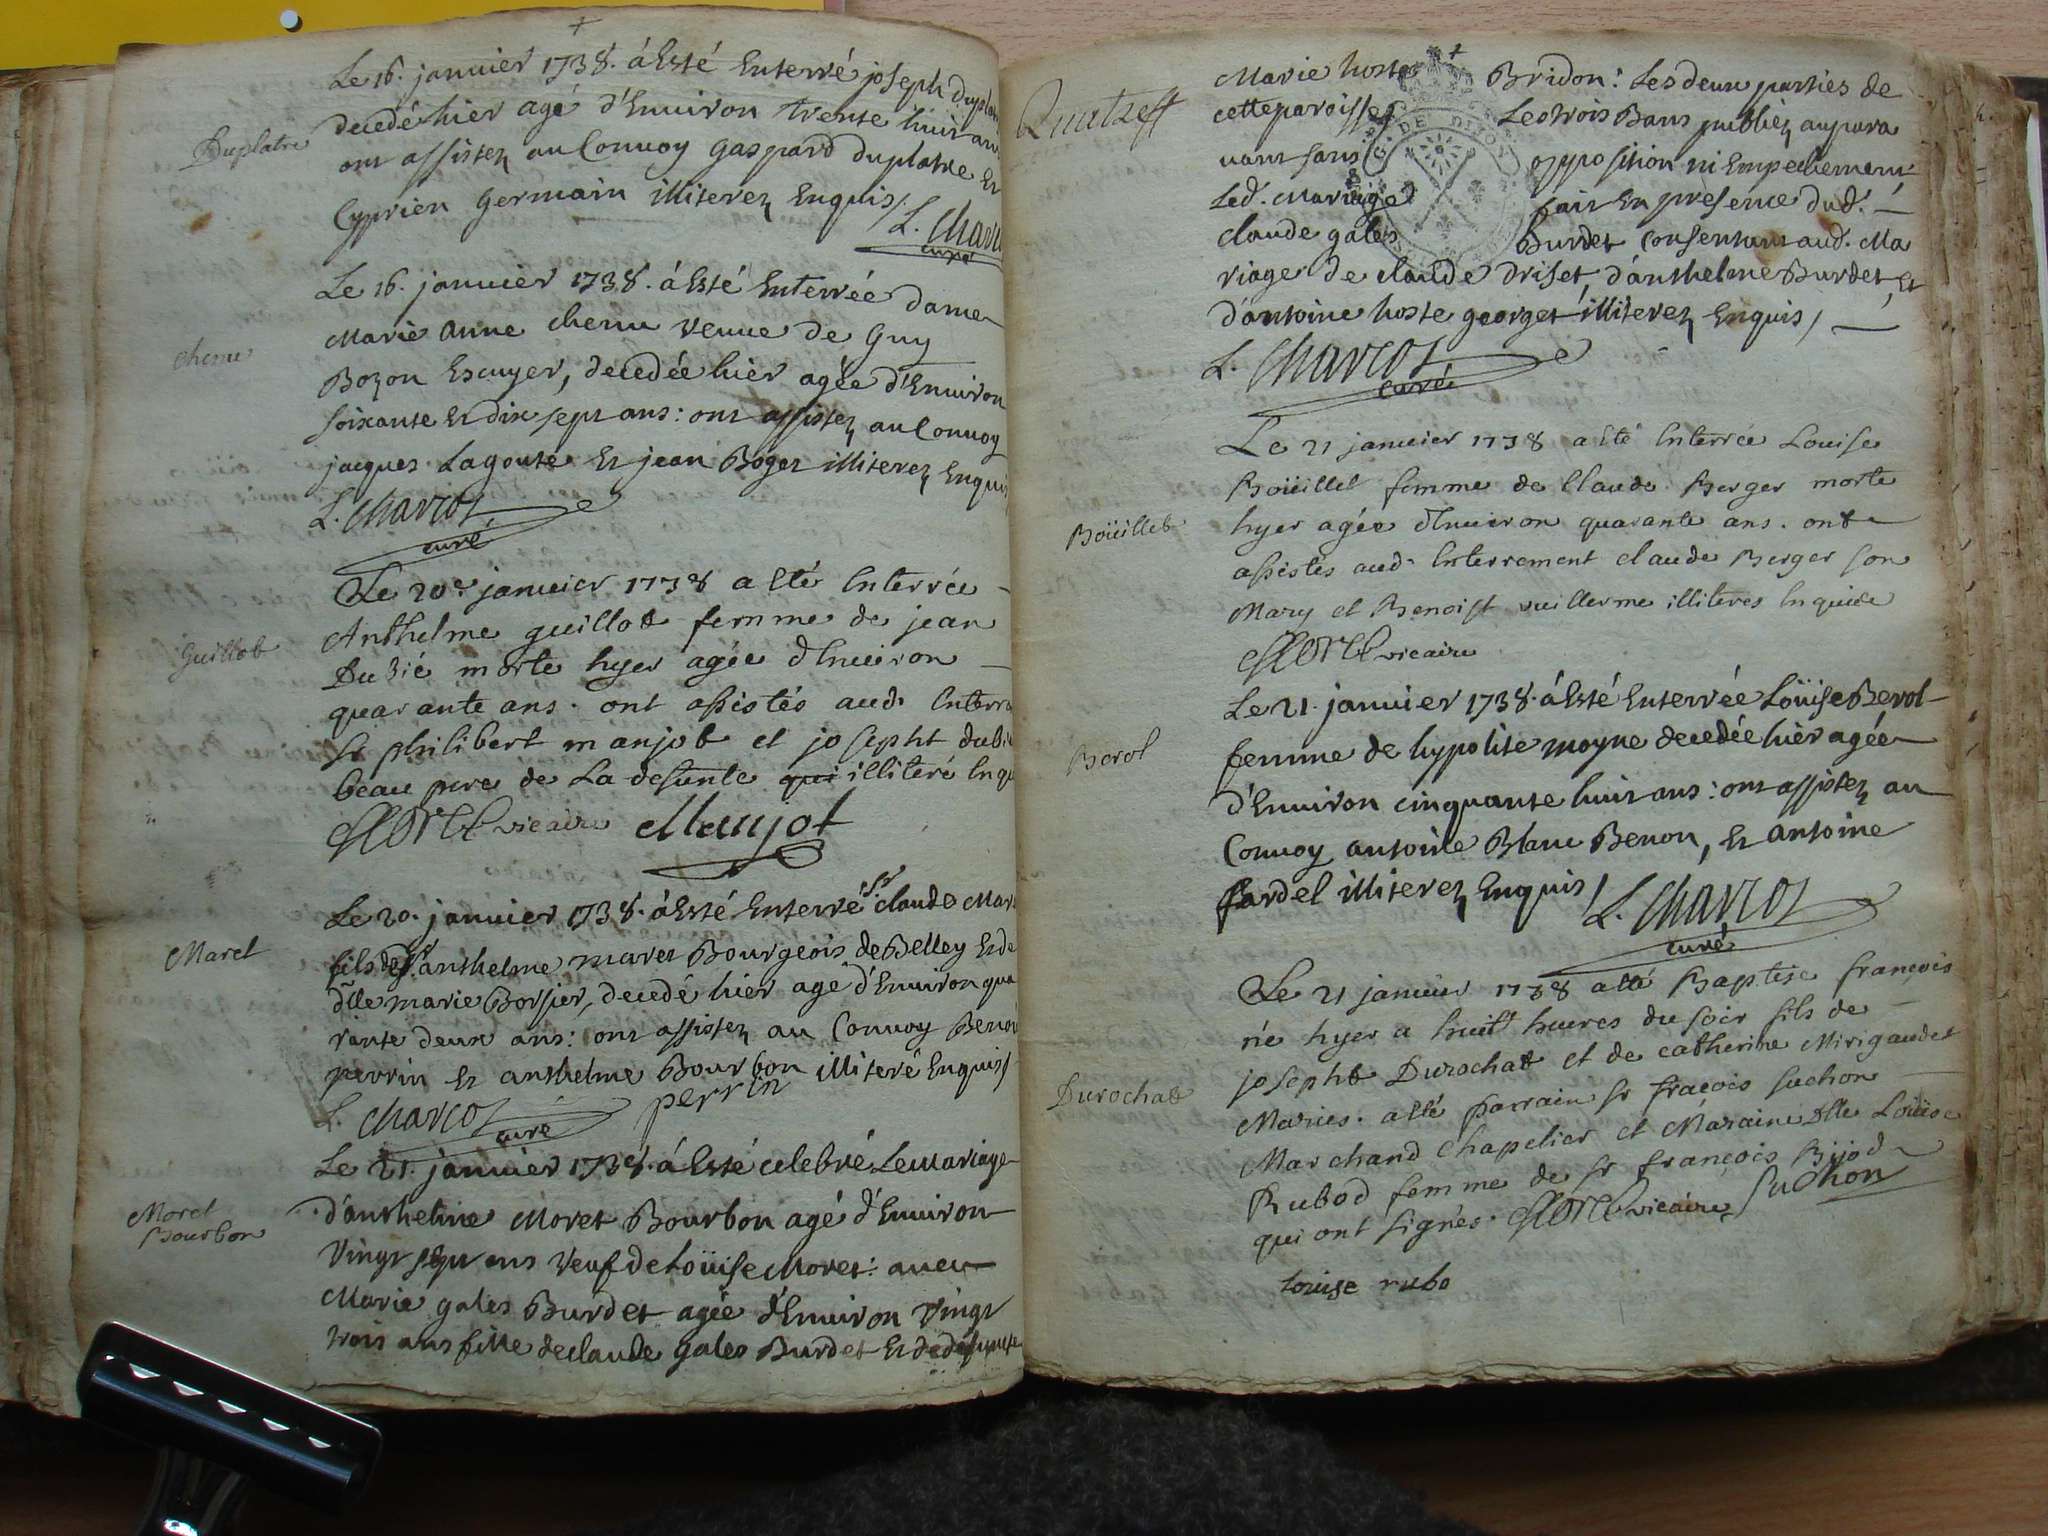 Le 16. janvier 1738. á Esté Enterré joseph duplatre
Duplatre
decedé hier agé d'Environ trente huit ans
ont assistez au Convoy gaspard duplatre Et
Cyprien germain illiterez Enquis/.
L. Charcot
curé
Le 16. janvier 1738. á Esté Enterrée dame
Chenu
Marie Anne chenu veuve de Guy
Bozon Escuyer, decedée hier agée d'Environ
soixante Et dix sept ans: ont assistez au Convoy
jacques Lagouté Et jean Boger illiterez Enquis
L. Charcot
curé
Le 20e janvier 1738 a Eté Enterrée
Guillot
Anthelme guillot femme de jean
Dubié morte hyer agée d'Environ
quarante ans. ont assistés aud. Enterre
Sr philibert manjot et josepht dubié
beau pere de La defunte qui illiteré Enquis
vicaire Manjot
Le 20. janvier 1738. á Esté Enterré Sr. claude Maret
Maret
fils de Sr. anthelme maret Bourgeois de Belley Et de
dlle marie Borsier, decedé hier agé d'Environ qua
rante deux ans: ont assistez au Convoy Benoit
perrin Et anthelme Bourbon illiteré Enquis/
L. Charcot curé perrin
Le 21. janvier 1738. á Esté celebré Le mariage
Moret
Bourbon
d'anthelme Moret Bourbon agé d'Environ
Vingt sept ans Veuf de Loüise Moret: avec
Marie gales Burdet agée d'Environ Vingt
trois ans fille de claude gales Burdet Et de defunte
Marie hoste Bridon: Les deux parties de
cette paroisse Les trois Bans publiez aupara
vant sans opposition ni Empechement
Led. Mariage fait En presence dud.
claude gales Burdet Consentant aud. Ma
riage de claude Driset, d'anthelme Burdet, Et
d'antoine hoste georget illiterez Enquis/
DE DIJON
L. Charcot
curé
Le 21 janvier 1738 a Eté Enterrée Louise
Boüillet femme de Claude Berger morte
Boüillet
hyer agée d'Environ quarante ans. ont
assistés aud. Enterrement claude Berger son
Mary et Benoist vuillerme illiteres Enquis
vicaire
Le 21. janvier 1738. á Esté Enterrée Loüise Berol
Berol
femme de hypolite moyne decedée hier agée
d'Environ cinquante huit ans: ont assistez au
Convoy antoine Blanc Benon, Et antoine
fardel illiterez Enquis/ L. Charcot
curé
Le 21 janvier 1738 a Eté Baptise françois
né hyer a huit heures du soir fils de
Durochat
josepht Durochat et de catherine Mirigaudet
Maries. a Eté parrain sr fraçois suchon
Marchand Chapelier et Maraine dlle Loüise
Rubod femme de sr françois Bijod
qui ont signés. vicaire Suchon
Louise rubo